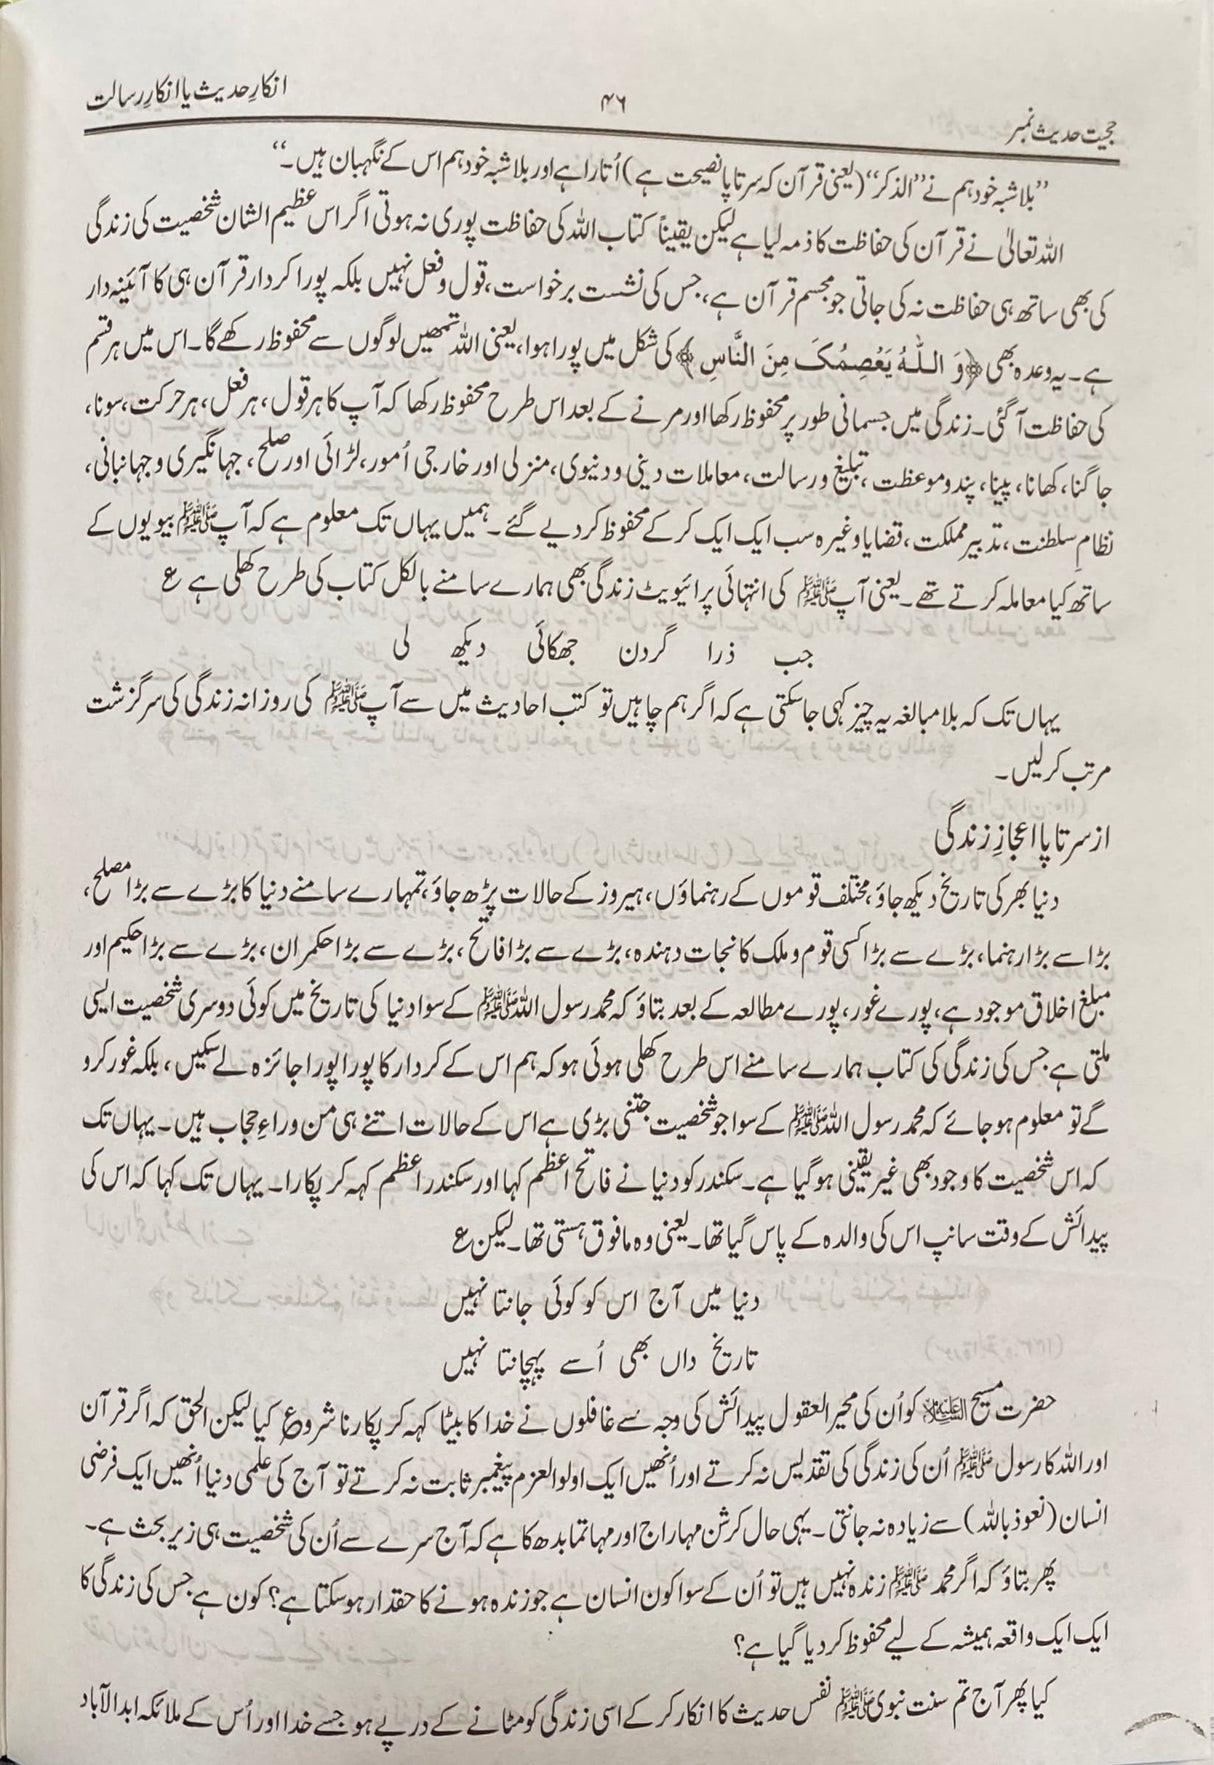 حجیت حدیث نمبر
۴۶
انکارِ حدیث یا انکارِ رسالت
”بلا شبہ خود ہم نے ”الذکر“ (یعنی قرآن کہ سرتاپا نصیحت ہے) اُتارا ہے اور بلا شبہ خود ہم اس کے نگہبان ہیں۔“
اللہ تعالیٰ نے قرآن کی حفاظت کا ذمہ لیا ہے لیکن یقیناً کتاب اللہ کی حفاظت پوری نہ ہوتی اگر اس عظیم الشان شخصیت کی زندگی
کی بھی ساتھ ہی حفاظت نہ کی جاتی جو مجسم قرآن ہے، جس کی نشست برخواست، قول و فعل نہیں بلکہ پورا کردار قرآن ہی کا آئینہ دار
ہے۔ یہ وعدہ بھی ﴿وَ اللّٰهُ یَعْصِمُکَ مِنَ النَّاسِ﴾ کی شکل میں پورا ہوا، یعنی اللہ تمھیں لوگوں سے محفوظ رکھے گا۔ اس میں ہر قسم
کی حفاظت آ گئی۔ زندگی میں جسمانی طور پر محفوظ رکھا اور مرنے کے بعد اس طرح محفوظ رکھا کہ آپ کا ہر قول، ہر فعل، ہر حرکت، سونا،
جاگنا، کھانا، پینا، پند و موعظت، تبلیغ و رسالت، معاملات دینی و دنیوی، منزلی اور خارجی اُمور، لڑائی اور صلح، جہانگیری و جہانبانی،
نظامِ سلطنت، تدبیر مملکت، قضایا وغیرہ سب ایک ایک کر کے محفوظ کر دیے گئے۔ ہمیں یہاں تک معلوم ہے کہ آپ ﷺ بیویوں کے
ساتھ کیا معاملہ کرتے تھے۔ یعنی آپ ﷺ کی انتہائی پرائیویٹ زندگی بھی ہمارے سامنے بالکل کتاب کی طرح کھلی ہے ع
جب ذرا گردن جھکائی دیکھ لی
یہاں تک کہ بلا مبالغہ یہ چیز کہی جا سکتی ہے کہ اگر ہم چاہیں تو کتب احادیث میں سے آپ ﷺ کی روزانہ زندگی کی سرگزشت
مرتب کر لیں۔
از سرتاپا اعجازِ زندگی
دنیا بھر کی تاریخ دیکھ جاؤ، مختلف قوموں کے رہنماؤں، ہیروز کے حالات پڑھ جاؤ، تمہارے سامنے دنیا کا بڑے سے بڑا مصلح،
بڑا سے بڑا رہنما، بڑے سے بڑا کسی قوم و ملک کا نجات دہندہ، بڑے سے بڑا فاتح، بڑے سے بڑا حکمران، بڑے سے بڑا حکیم اور
مبلغ اخلاق موجود ہے، پورے غور، پورے مطالعہ کے بعد بتاؤ کہ محمد رسول اللہ ﷺ کے سوا دنیا کی تاریخ میں کوئی دوسری شخصیت ایسی
ملتی ہے جس کی زندگی کی کتاب ہمارے سامنے اس طرح کھلی ہوئی ہو کہ ہم اس کے کردار کا پورا پورا جائزہ لے سکیں، بلکہ غور کرو
گے تو معلوم ہو جائے کہ محمد رسول اللہ ﷺ کے سوا جو شخصیت جتنی بڑی ہے اس کے حالات اتنے ہی من وراءِ حجاب ہیں۔ یہاں تک
کہ اس شخصیت کا وجود بھی غیر یقینی ہو گیا ہے۔ سکندر کو دنیا نے فاتح اعظم کہا اور سکندر اعظم کہہ کر پکارا۔ یہاں تک کہا کہ اس کی
پیدائش کے وقت سانپ اس کی والدہ کے پاس گیا تھا۔ یعنی وہ مافوق ہستی تھا۔ لیکن ع
دنیا میں آج اس کو کوئی جانتا نہیں
تاریخ داں بھی اُسے پہچانتا نہیں
حضرت مسیح علیہ السلام کو اُن کی محیر العقول پیدائش کی وجہ سے غافلوں نے خدا کا بیٹا کہہ کر پکارنا شروع کیا لیکن الحق کہ اگر قرآن
اور اللہ کا رسول ﷺ اُن کی زندگی کی تقدیس نہ کرتے اور اُنھیں ایک اولوالعزم پیغمبر ثابت نہ کرتے تو آج کی علمی دنیا اُنھیں ایک فرضی
انسان (نعوذ باللہ) سے زیادہ نہ جانتی۔ یہی حال کرشن مہاراج اور مہاتما بدھ کا ہے کہ آج سرے سے اُن کی شخصیت ہی زیر بحث ہے۔
پھر بتاؤ کہ اگر محمد ﷺ زندہ نہیں ہیں تو اُن کے سوا کون انسان ہے جو زندہ ہونے کا حقدار ہو سکتا ہے؟ کون ہے جس کی زندگی کا
ایک ایک واقعہ ہمیشہ کے لیے محفوظ کر دیا گیا ہے؟
کیا پھر آج تم سنت نبوی ﷺ نفس حدیث کا انکار کر کے اسی زندگی کو مٹانے کے درپے ہو جسے خدا اور اُس کے ملائکہ ابد الآباد